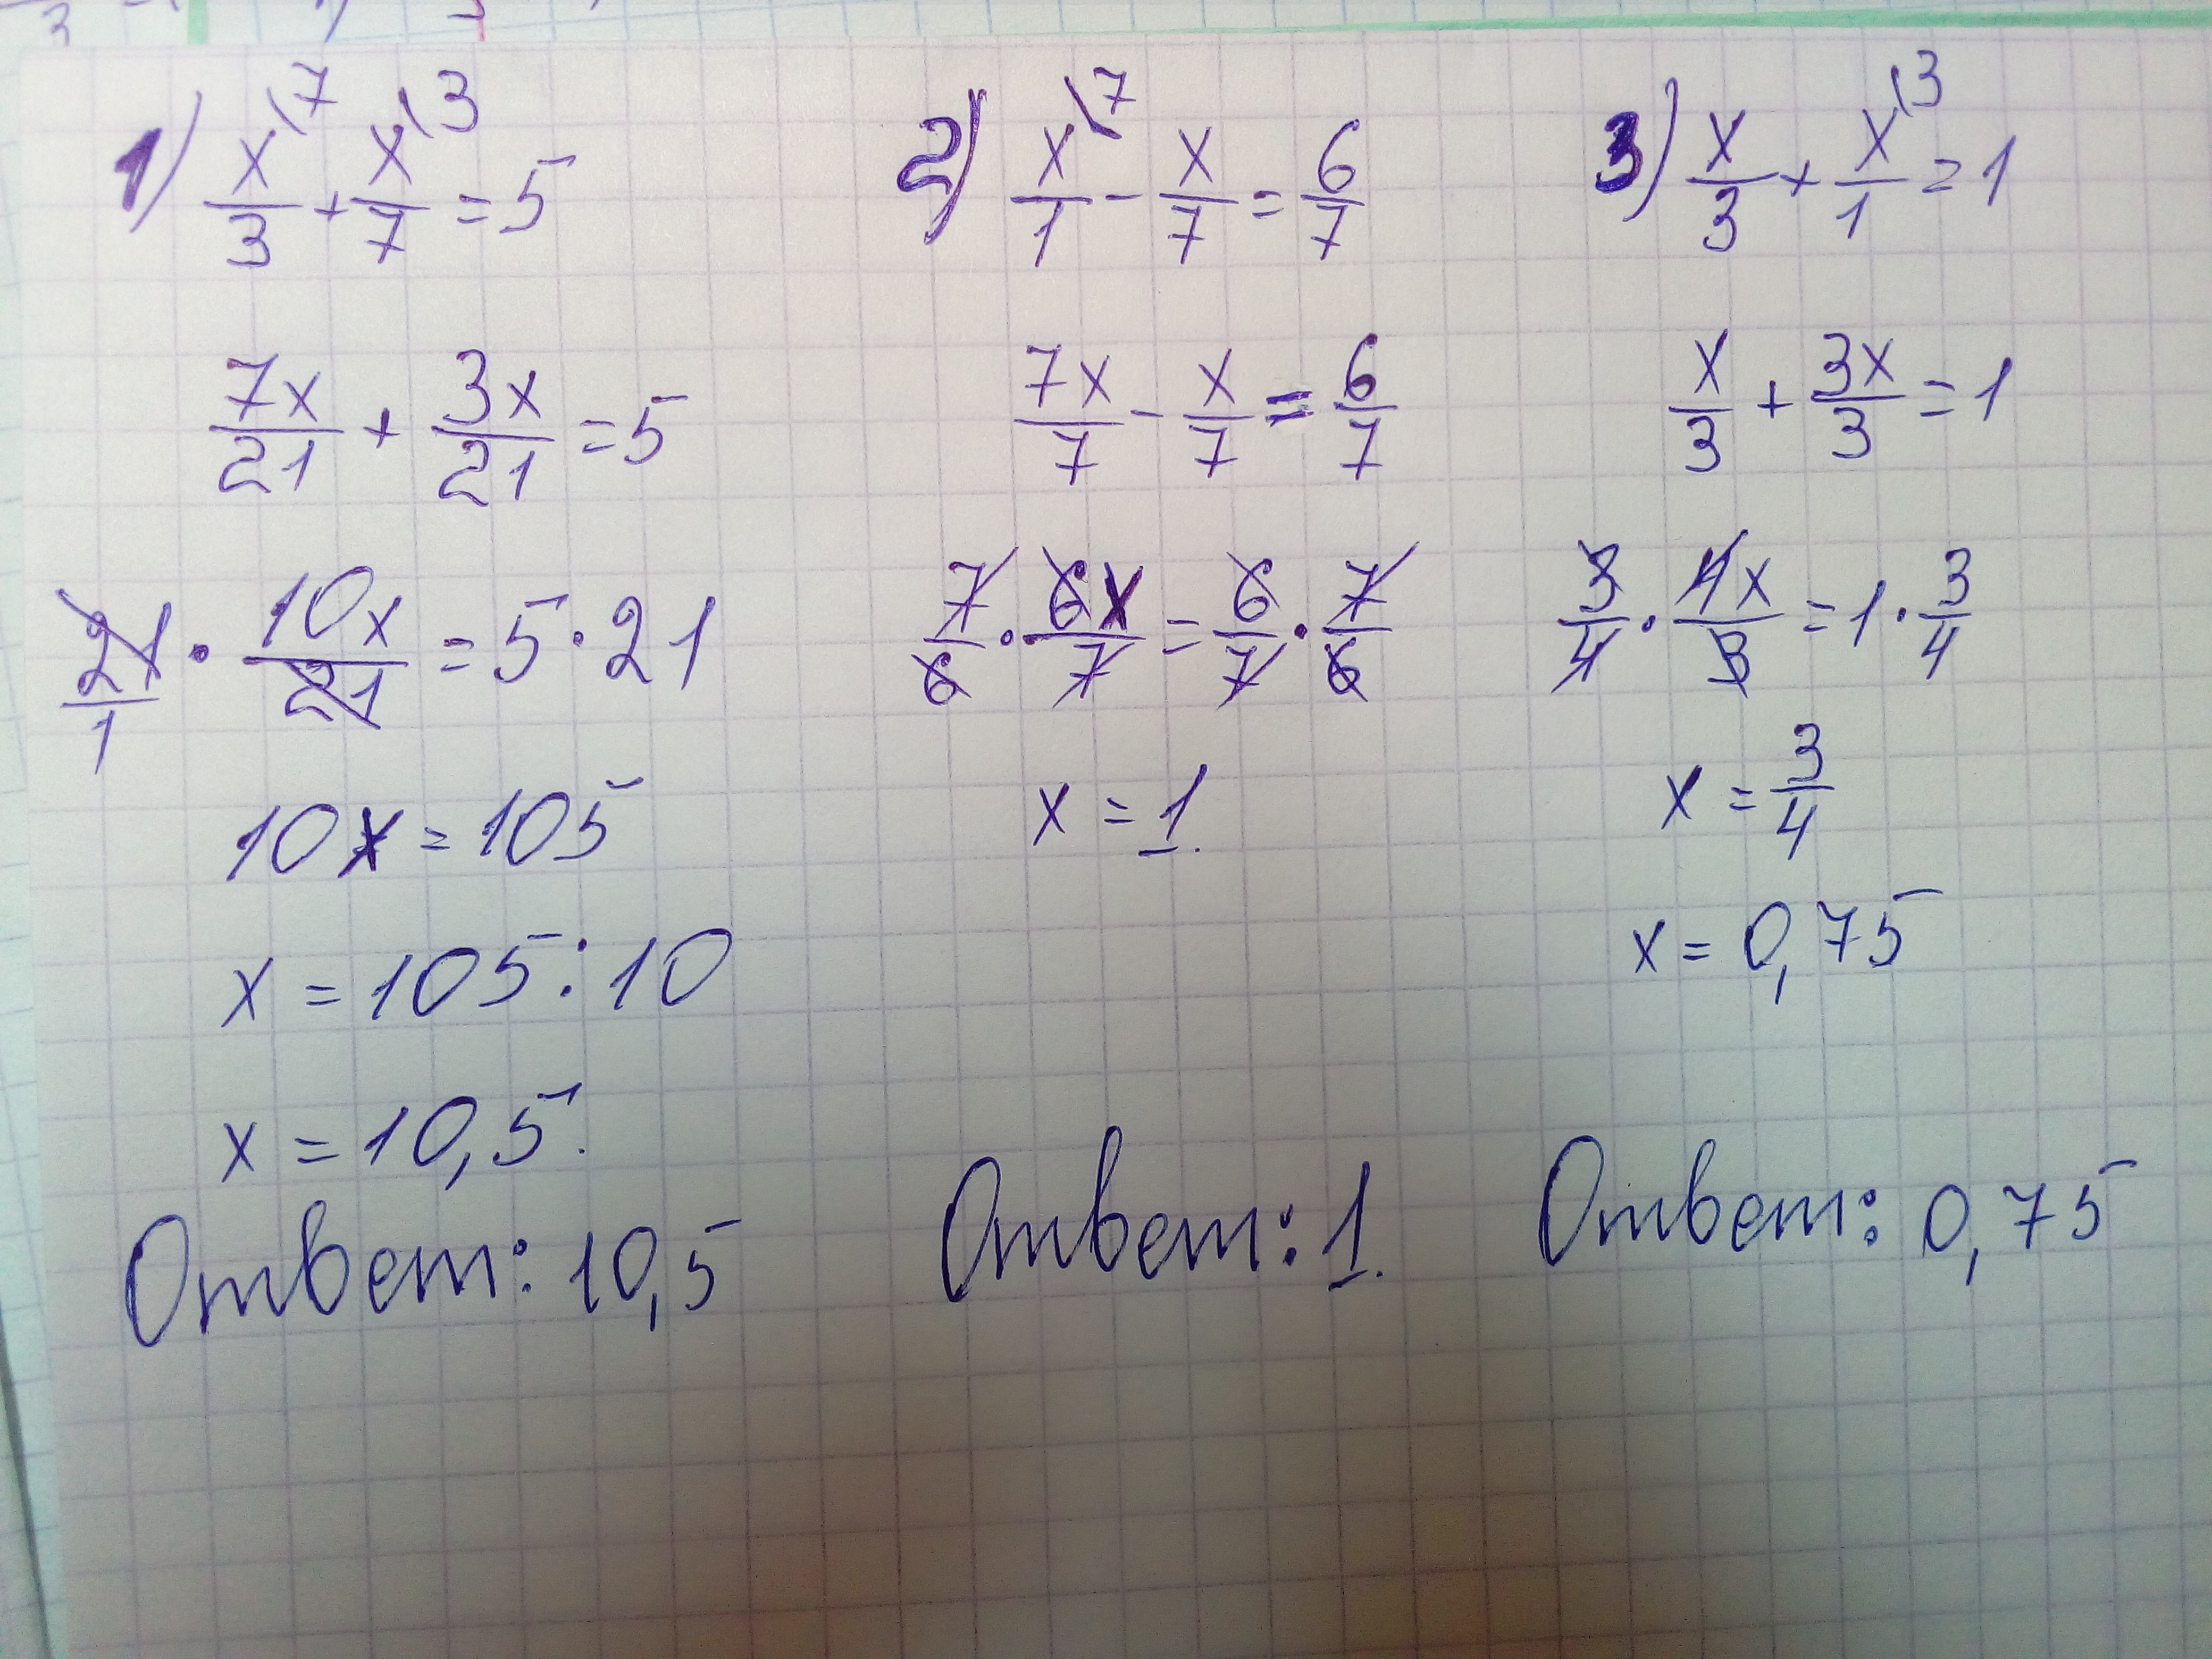 1) x/3 \7 + x/7 \3 = 5
7x/21 + 3x/21 = 5
21/1 · 10x/21 = 5 · 21
10x = 105
x = 105 : 10
x = 10,5.
Ответ: 10,5
2) x/1 \7 - x/7 = 6/7
7x/7 - x/7 = 6/7
7/6 · 6x/7 = 6/7 · 7/6
x = 1.
Ответ: 1.
3) x/3 + x/1 \3 = 1
x/3 + 3x/3 = 1
3/4 · 4x/3 = 1 · 3/4
x = 3/4
x = 0,75
Ответ: 0,75